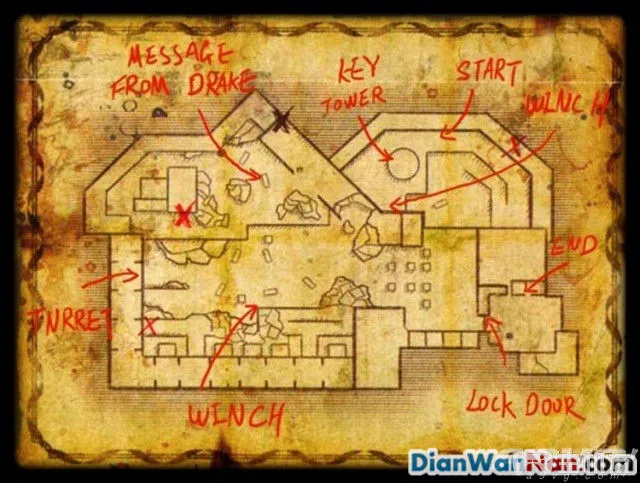 MESSAGE
FROM DRAKE
KEY
TOWER
START
WINCH
END
TNRRET
WINCH
LOCK DOOR
DianWanNan.com